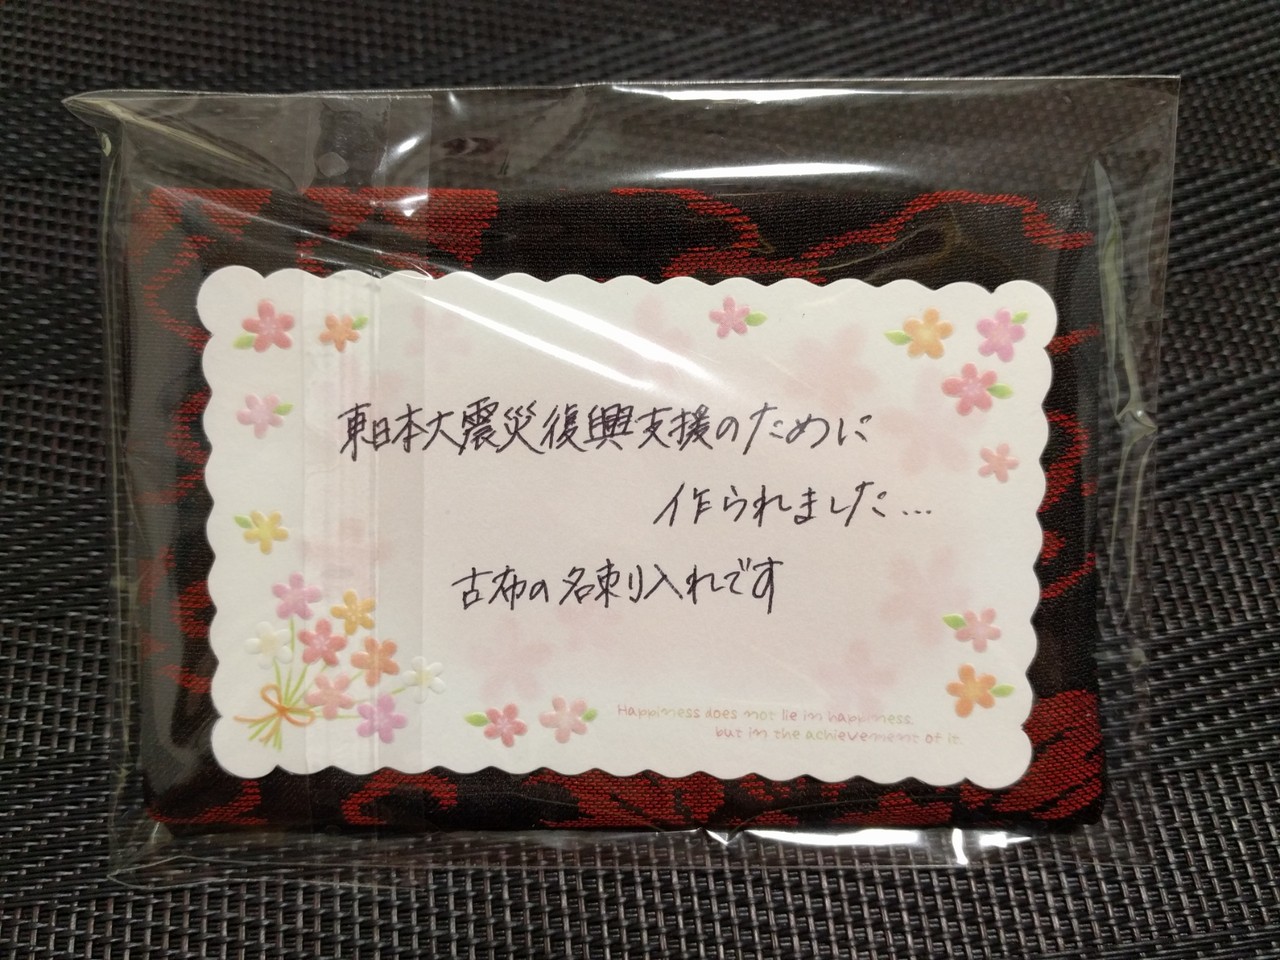 東日本大震災復興支援のために
作られました…
古布の名刺入れです
Happiness does not lie in happiness,
but in the achievement of it.